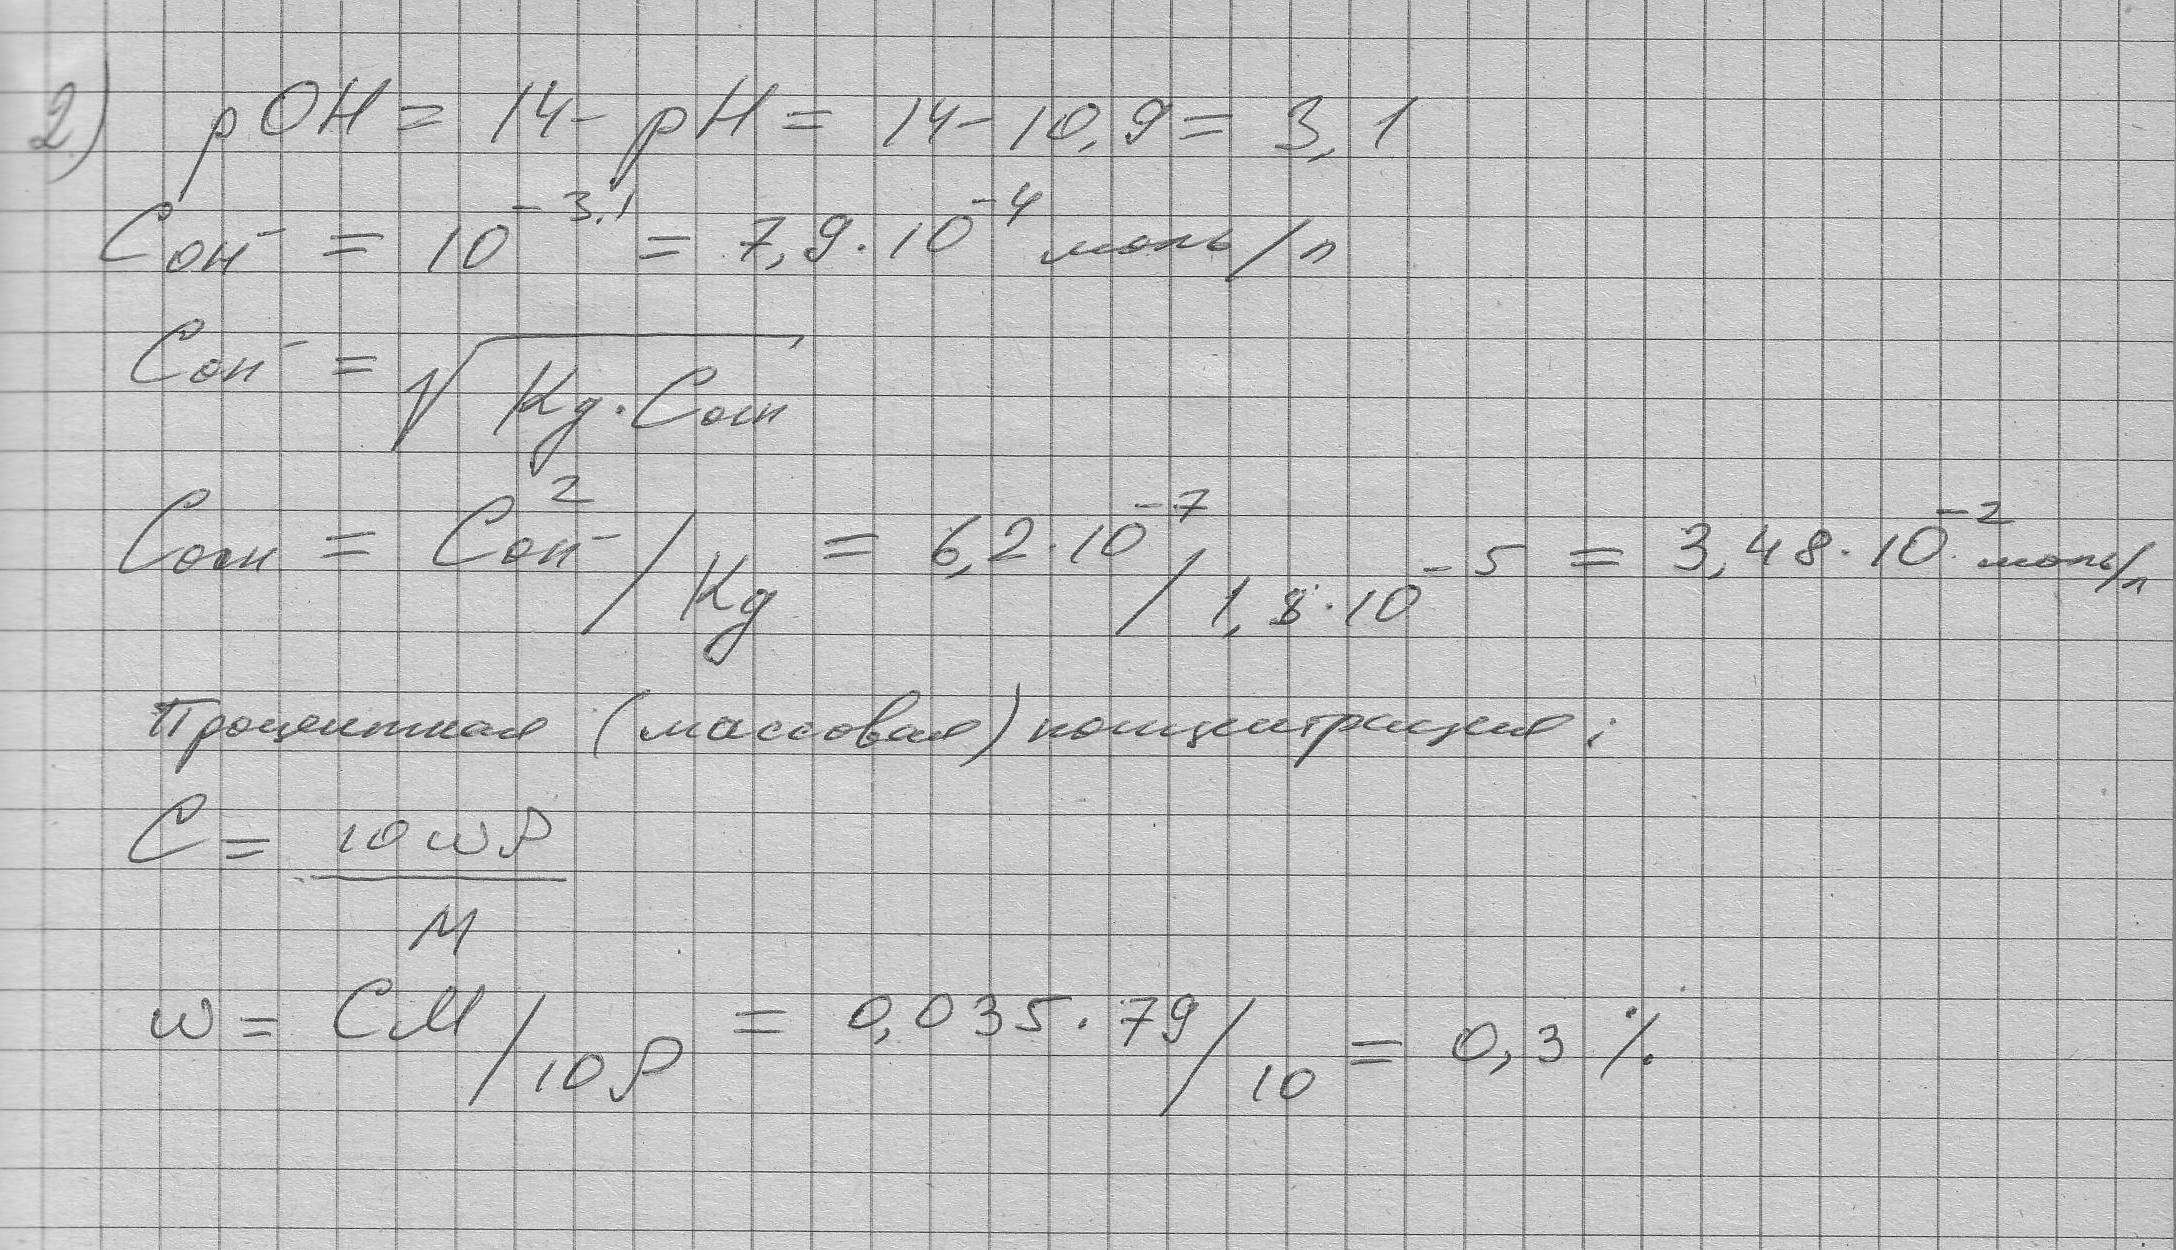 2) pOH = 14 - pH = 14 - 10,9 = 3,1
C_OH⁻ = 10⁻³,¹ = 7,9 · 10⁻⁴ моль/л
C_OH⁻ = √(Kд · Cосн)
Cосн = C²_OH⁻ / Kд = 6,2 · 10⁻⁷ / 1,8 · 10⁻⁵ = 3,48 · 10⁻² моль/л
Процентная (массовая) концентрация:
C = 10 ω ρ / M
ω = CM / 10 ρ = 0,035 · 79 / 10 = 0,3 %